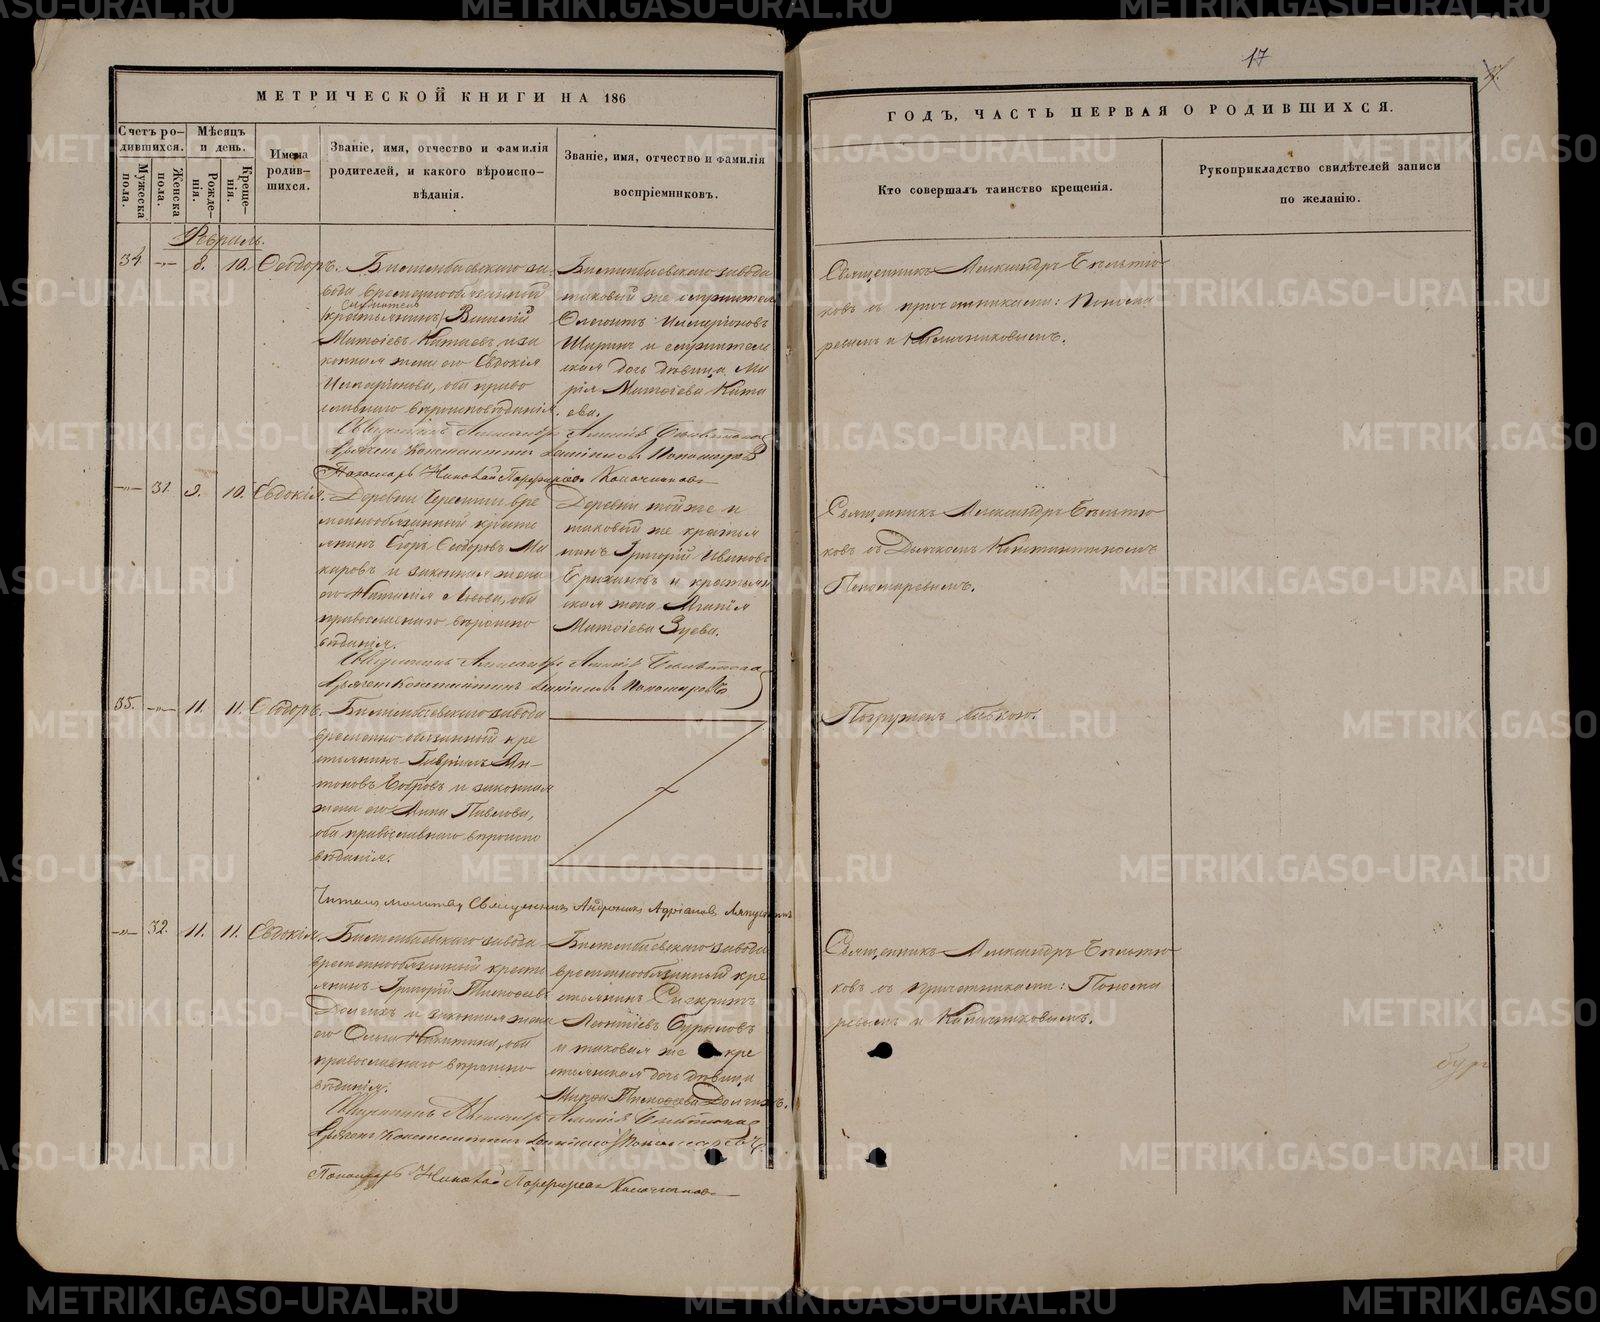 17
МЕТРИЧЕСКОЙ КНИГИ НА 186
ГОДЪ, ЧАСТЬ ПЕРВАЯ О РОДИВШИХСЯ.
Счетъ ро-
дившихся.
Мужеска
пола.
Женска
пола.
Мѣсяцъ
и день.
Рожде-
нія.
Креще-
нія.
Имена
родив-
шихся.
Званіе, имя, отчество и фамилія
родителей, и какого вѣроиспо-
вѣданія.
Званіе, имя, отчество и фамилія
воспріемниковъ.
Кто совершалъ таинство крещенія.
Рукоприкладство свидѣтелей записи
по желанію.
Февраль.
34. —"— 8. 10. Ѳеодоръ.
Билимбаевскаго за-
вода временнообязанный
/крестьянинъ/
Матѳіевъ Китаевъ и за
конная жена его Евдокія
Иларіонова, оба право
славнаго вѣроисповѣданія.
Билимбаевскаго завода
таковый же служитель
Иларіоновъ
Ширинъ и служитель
ская дочь дѣвица Ма
рія Матѳіева Кита
ева.
Священникъ Александръ
ковъ съ причетниками: Понома
ревымъ и Калачниковымъ.
Священникъ Александръ Алексіевъ
Дьячекъ Константинъ Пономаревъ
Пономарь Николай Калачниковъ
—"— 31. 9. 10. Евдокія.
Деревни Черемши вре
меннообязанный кресть
янинъ Егоръ Ѳеодоровъ Ма
каровъ и законная жена
его Наталія Львова, оба
православнаго вѣроиспо
вѣданія.
Деревни той же и
таковый же крестья
нинъ Григорій Ивановъ
Ерихиновъ и крестьян
ская жена Агапія
Матѳіева Зуева.
Священникъ Александръ
ковъ съ Дьячкомъ Константиномъ
Пономаревымъ.
Священникъ Александръ Алексіевъ
Дьячекъ Константинъ Пономаревъ
35. —"— 11. 11. Ѳеодоръ.
Билимбаевскаго завода
временно-обязанный кре
стьянинъ Гавріилъ Ан-
тоновъ Бобровъ и законная
жена его Анна Павлова,
оба православнаго вѣроиспо
вѣданія.
Погруженъ бабкою.
Читалъ молитву Священникъ Андроникъ Адріановъ Ляпустинъ
—"— 32. 11. 11. Евдокія.
Билимбаевскаго завода
временнообязанный кресть
янинъ Григорій Тимоѳеевъ
Долгихъ и законная жена
его Ольга Никитина, оба
православнаго вѣроиспо
вѣданія.
Билимбаевскаго завода
временнообязанный кре
стьянинъ
Леонтіевъ Бурыловъ
и таковая же кре
стьянская дочь дѣвица
Тимоѳеева Долгихъ.
Священникъ Александръ
ковъ съ причетниками: Понома
ревымъ и Калачниковымъ.
Священникъ Александръ Алексіевъ
Дьячекъ Константинъ Пономаревъ
Пономарь Николай Калачниковъ
METRIKI.GASO-URAL.RU